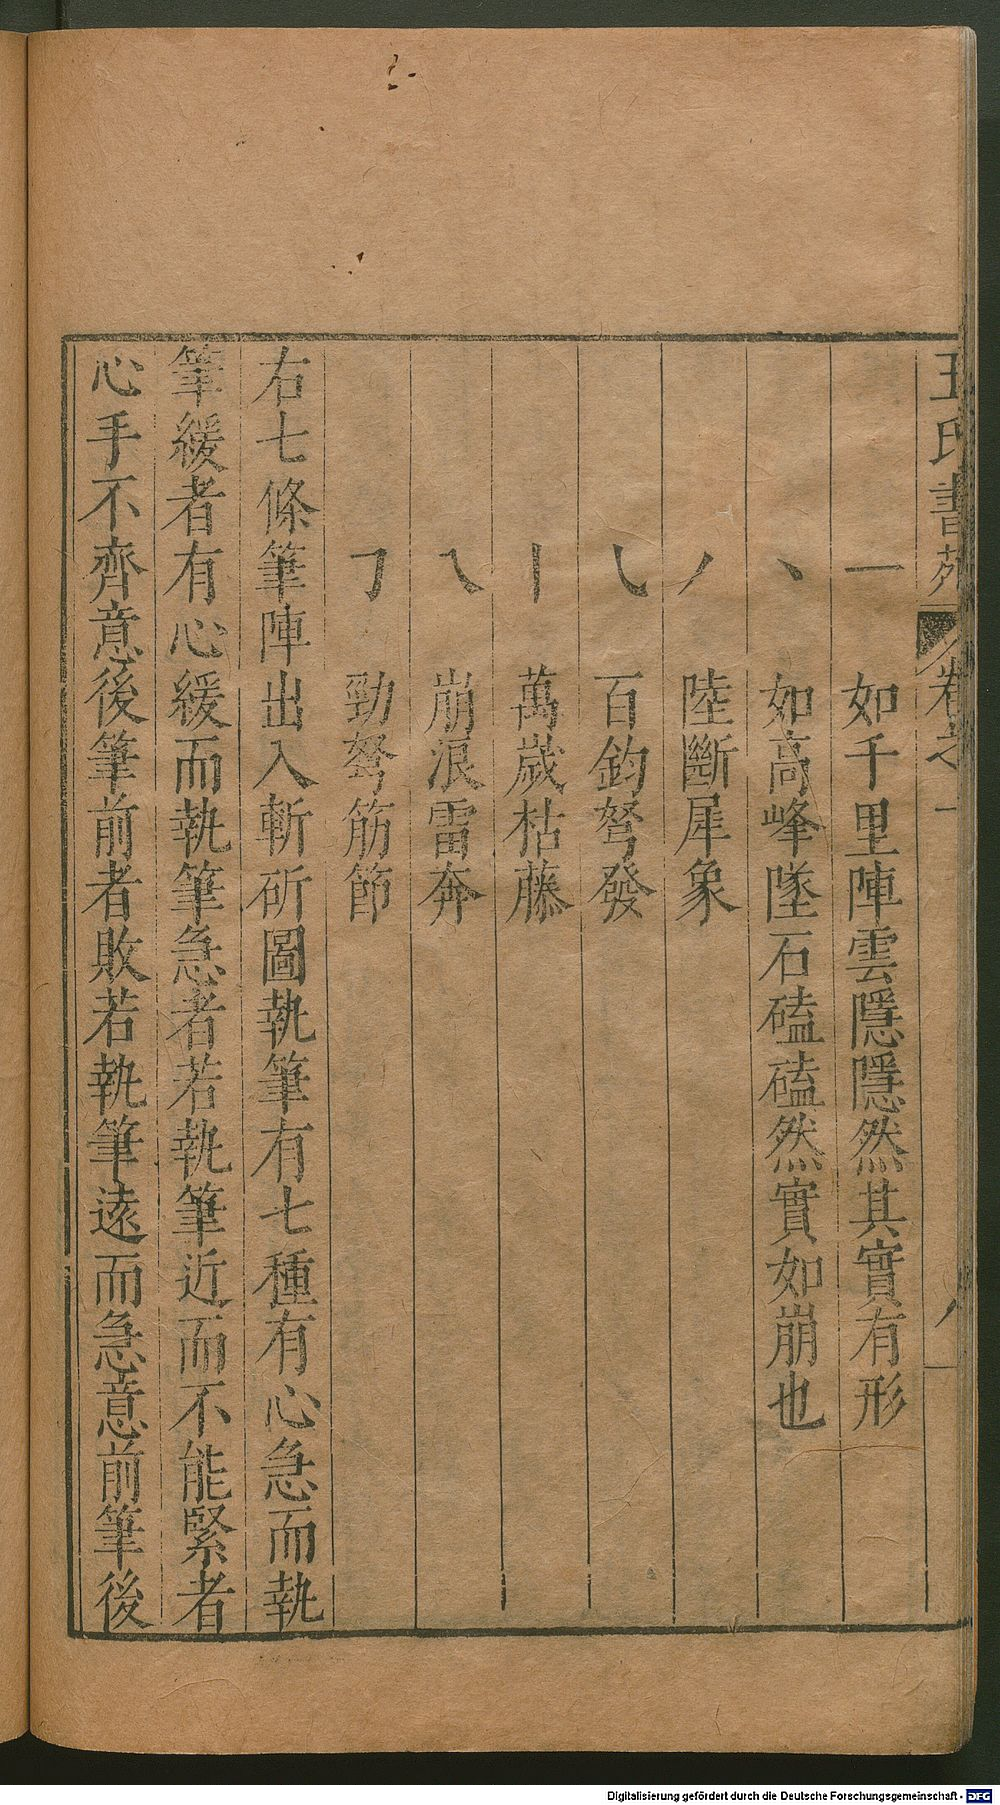 王氏書苑 卷之一 八
一 如千里陣雲隱隱然其實有形
丶 如高峰墜石磕磕然實如崩也
丿 陸斷犀象
乀 百鈞弩發
丨 萬歲枯藤
㇏ 崩浪雷奔
㇆ 勁弩筋節
右七條筆陣出入斬斫圖執筆有七種有心急而執
筆緩者有心緩而執筆急者若執筆近而不能緊者
心手不齊意後筆前者敗若執筆遠而急意前筆後
Digitalisierung gefördert durch die Deutsche Forschungsgemeinschaft - DFG